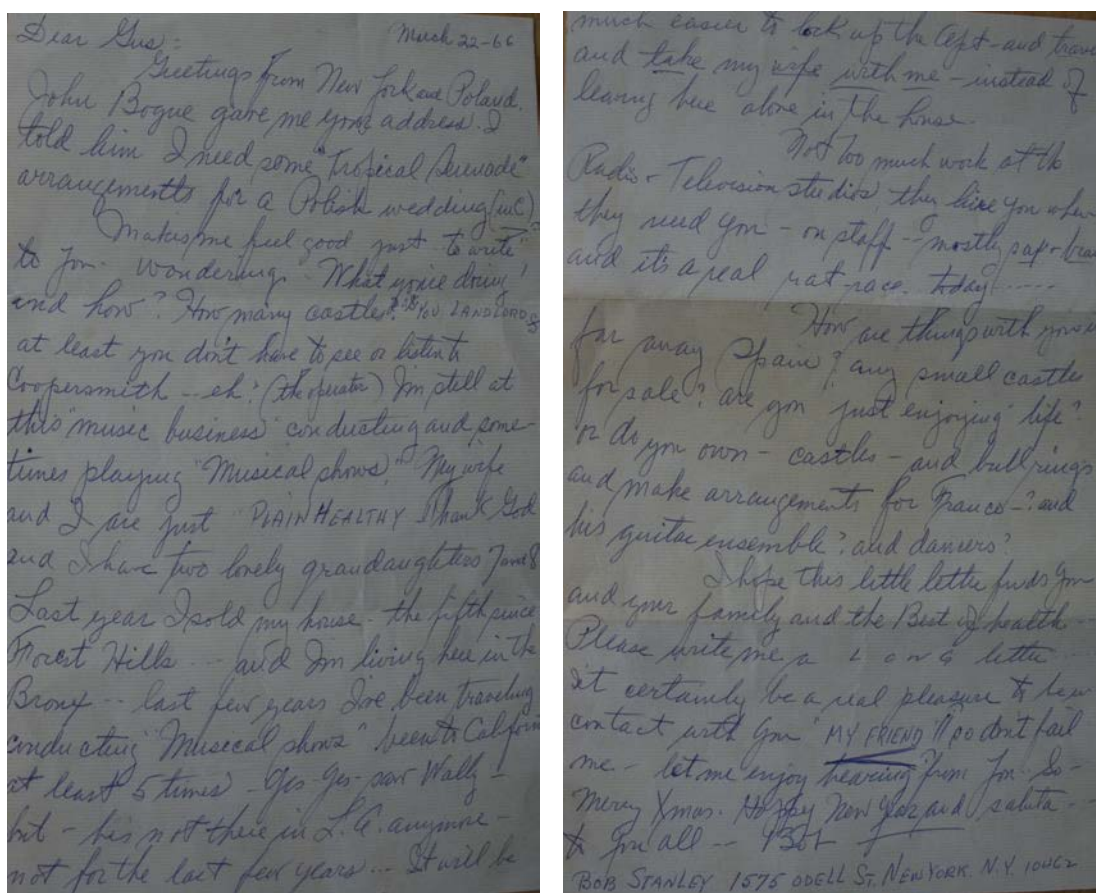 March 22-66
Dear Gus:
Greetings from New York and Poland.
John Bogue gave me your address. I
told him I need some "Tropical Serenade"
arrangements for a Polish wedding (in C)
Makes me feel good just to write
to you - wondering - What you're doing
and how? How many castles? YOU LANDLORD
at least you don't have to see or listen to
Coopersmith -- eh? (the operator) I'm still at
this "music business" conducting and some-
times playing "Musical shows." My wife
and I are just "PLAIN HEALTHY" Thank God
and I have two lovely grandaughters 7 and 8
Last year I sold my house - the fifth since
Forest Hills -- and I'm living here in the
Bronx -- last few years I've been traveling
conducting "Musical shows" been to California
at least 5 times - Yes-Yes- saw Wally -
but - his not there in L.A. anymore -
not for the last few years... It will be
much easier to lock up the Apt - and travel
and take my wife with me - instead of
leaving here alone in the house.
Not too much work at the
Radio + Television studios, they hire you when
they need you - on staff -- mostly sax + brass
and it's a real rat-race today ......
How are things with you in
far away Spain? any small castles
for sale? are you just enjoying life?
or do you own - castles - and bull rings
and make arrangements for Franco -? and
his guitar ensemble? and dancers?
I hope this little letter finds you
and your family and the Best of health -
Please write me a L O N G letter ...
it certainly be a real pleasure to be in
contact with you "MY FRIEND"!! so don't fail
me - let me enjoy hearing from you. So -
Merry Xmas. Happy New Year and saluta --
to you all -- Bob
BOB STANLEY 1575 ODELL ST. NEW YORK. N.Y. 10462